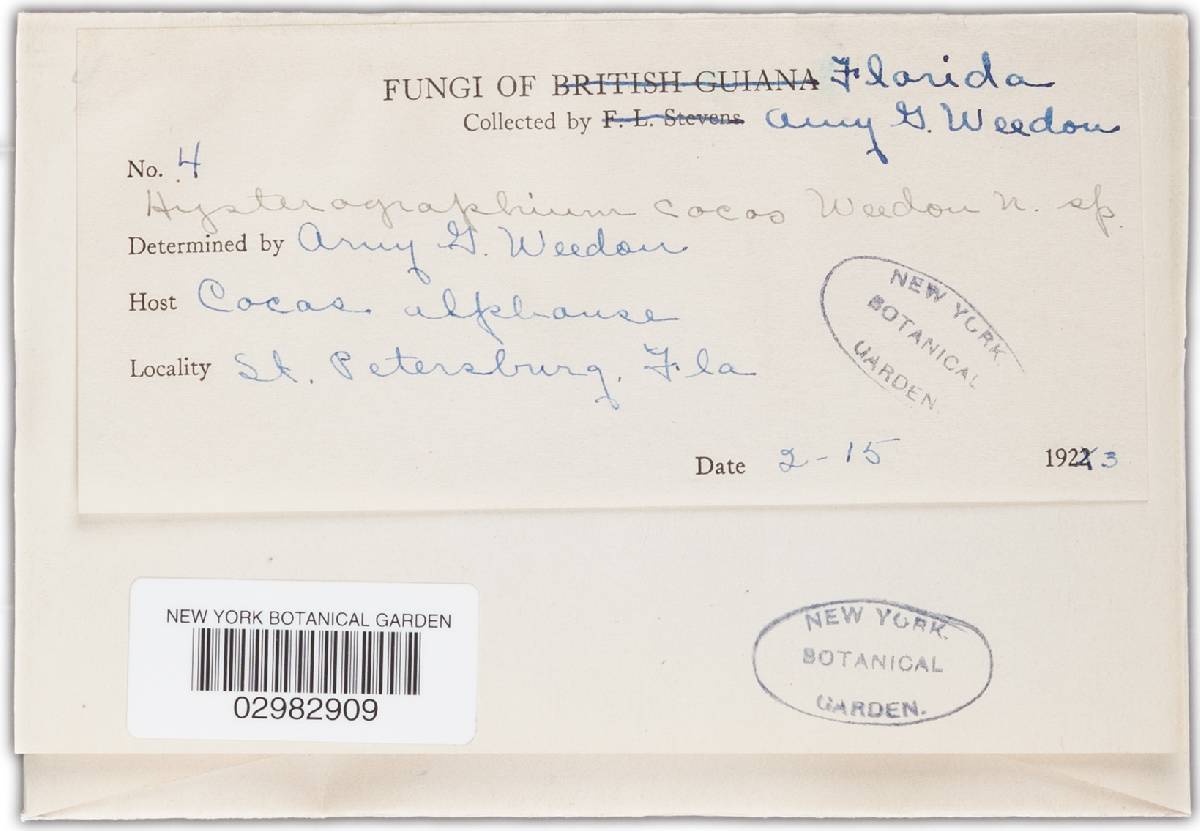 FUNGI OF BRITISH GUIANA Florida
Collected by F. L. Stevens. Amy G. Weedon
No. 4
Hysterographium cocos Weedon n. sp.
Determined by Amy G. Weedon
Host Cocos alphonse
Locality St. Petersburg, Fla
Date 2-15 1922 3
NEW YORK
BOTANICAL
GARDEN.
NEW YORK BOTANICAL GARDEN
02982909
NEW YORK.
BOTANICAL
GARDEN.